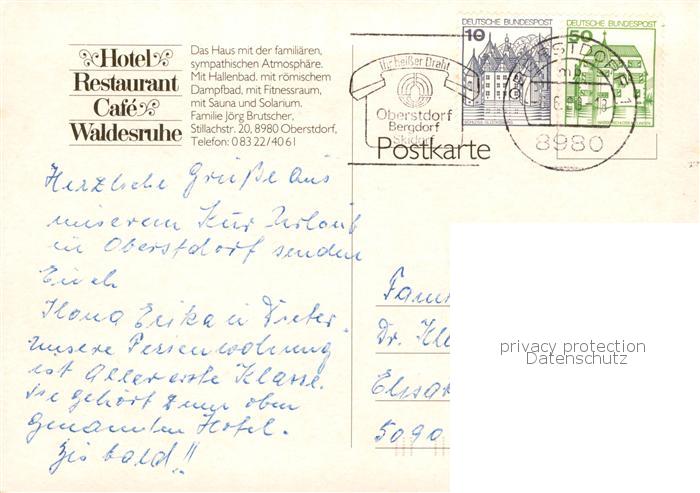 Hotel
Restaurant
Café
Waldesruhe
Das Haus mit der familiären,
sympathischen Atmosphäre.
Mit Hallenbad, mit römischem
Dampfbad, mit Fitnessraum,
mit Sauna und Solarium.
Familie Jörg Brutscher,
Stillachstr. 20, 8980 Oberstdorf,
Telefon: 0 83 22/40 61
Ihr heißer Draht
Oberstdorf
Bergdorf
Skidorf
DEUTSCHE BUNDESPOST
10
DEUTSCHE BUNDESPOST
50
8980
Postkarte
Herzliche Grüße aus
unserem Kur Urlaub
in Oberstdorf senden
Euch
Ilona Erika u Dieter.
unsere Ferienwohnung
ist Aller erste Klasse.
sie gehört zum oben
genannten Hotel.
Bis bald!!
Fam
Dr. Kle
Elisa
5090
privacy protection
Datenschutz